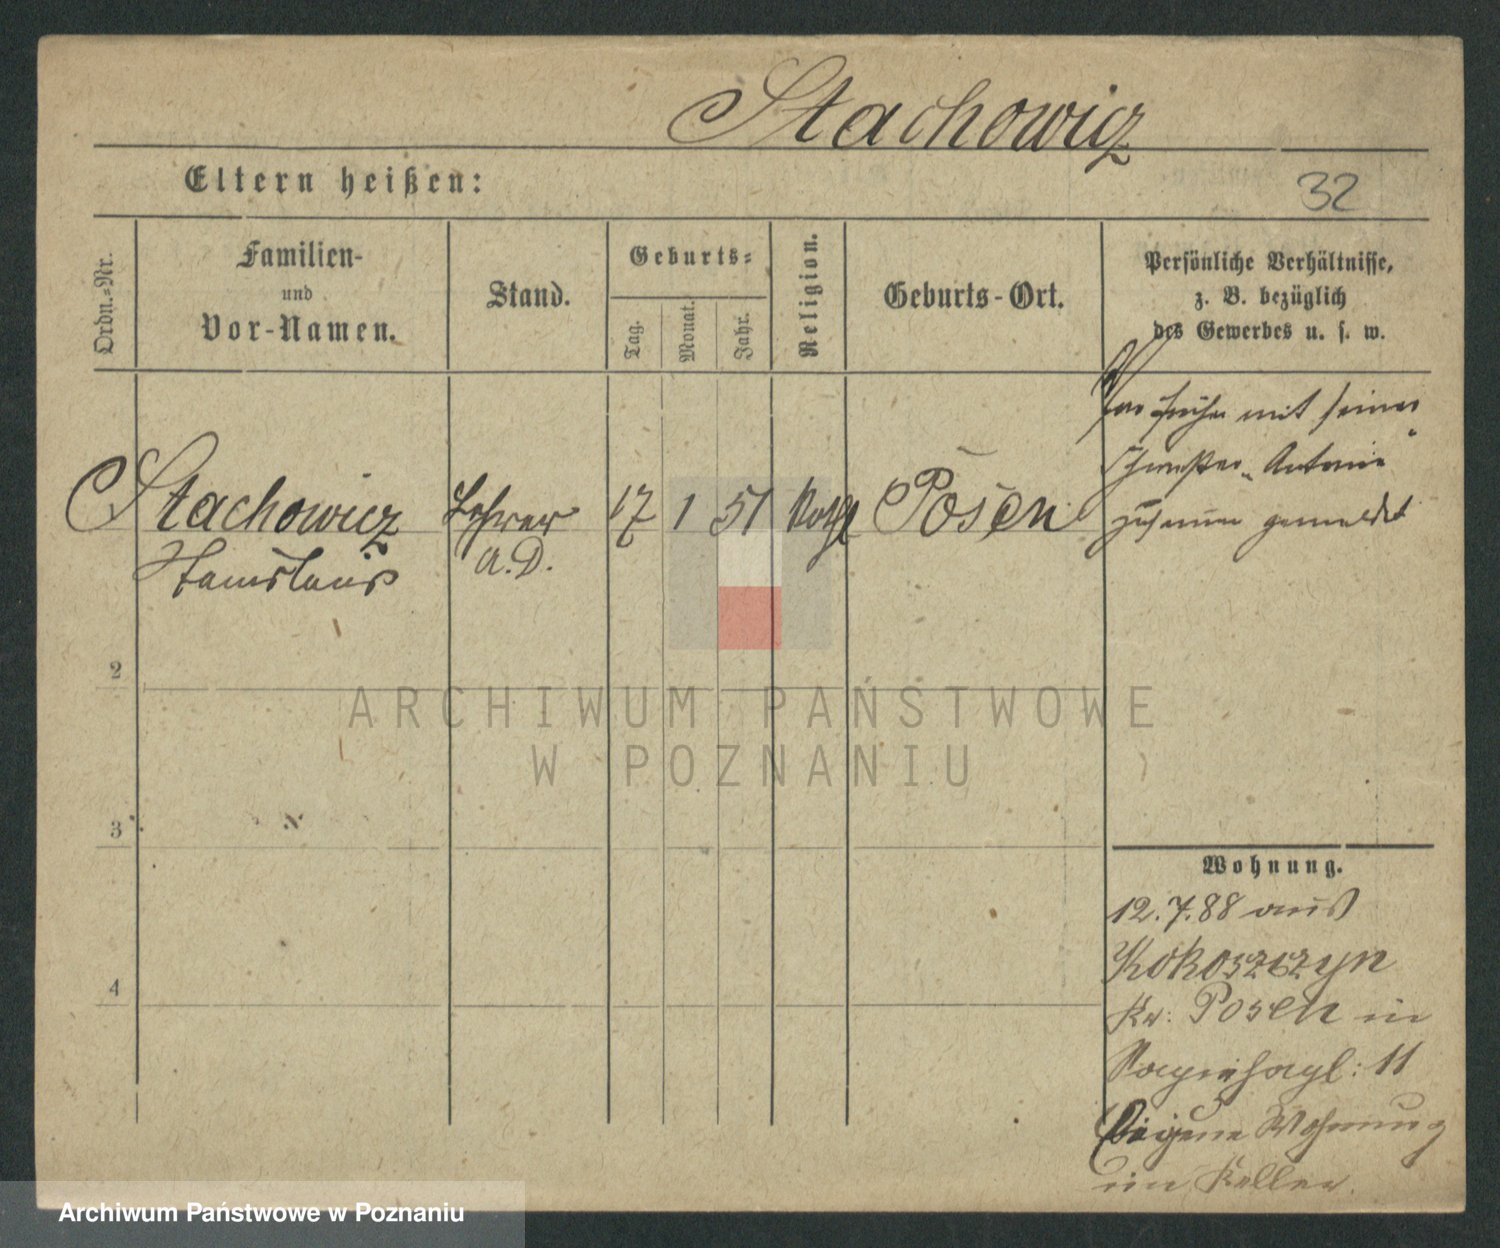 Stachowicz
Eltern heißen:
32
Ordn.-Nr.
Familien-
und
Vor-Namen.
Stand.
Geburts-
Tag.
Monat.
Jahr.
Religion.
Geburts-Ort.
Persönliche Verhältnisse,
z. B. bezüglich
des Gewerbes u. s. w.
1
Stachowicz
Stanislaus
Lehrer
a. D.
17
1
51
Kath
Posen
War früher mit seiner
Schwester „Antonie“
zusammen gemeldet
2
3
4
Wohnung.
12.7.88 aus
Kokoszczyn
Kr: Posen in
11
Eigene Wohnung
im Keller.
ARCHIWUM PAŃSTWOWE
W POZNANIU
Archiwum Państwowe w Poznaniu